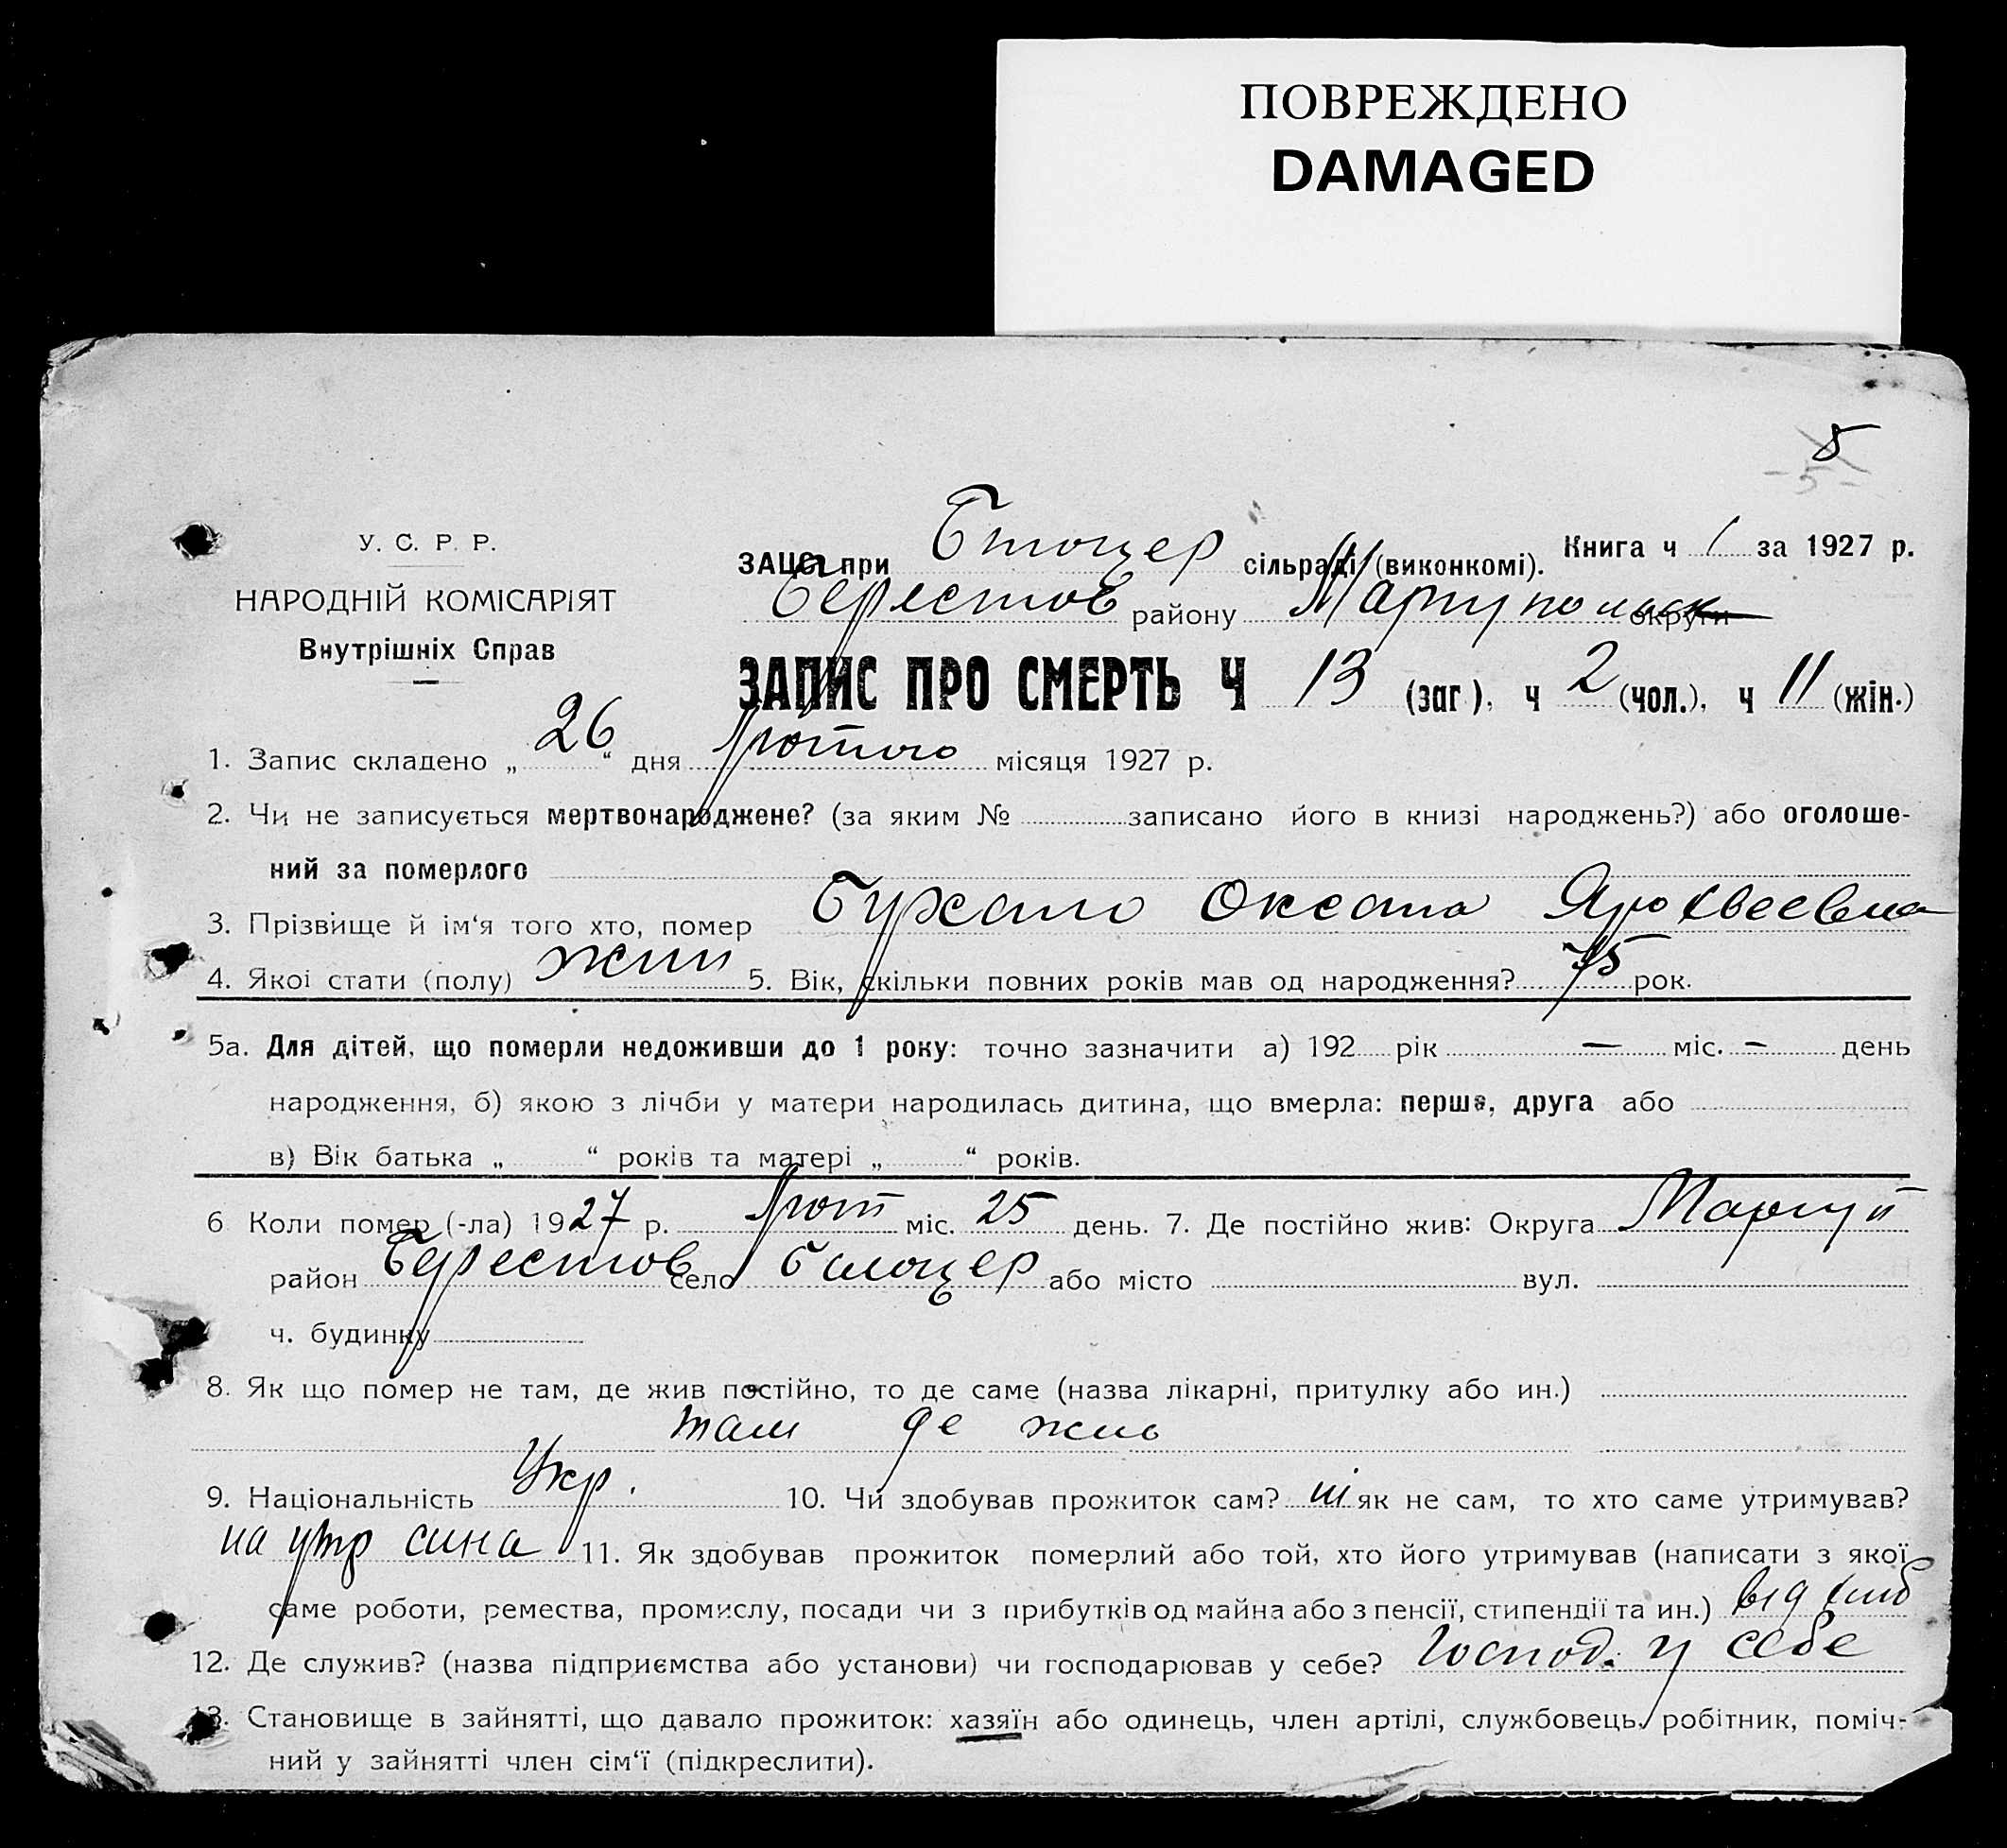 ПОВРЕЖДЕНО
DAMAGED
5
- 5 -
У. С. Р. Р.
НАРОДНІЙ КОМІСАРІЯТ
Внутрішніх Справ
ЗАЦС при сільраді (виконкомі). Книга ч 1 за 1927 р.
Берестов району Мариупольск округи
ЗАПИС ПРО СМЕРТЬ Ч 13 (заг), ч 2 (чол.), ч 11 (жін.)
1. Запис складено „ 26 “ дня Лютого місяця 1927 р.
2. Чи не записується мертвонароджене? (за яким № записано його в книзі народжень?) або оголоше-
ний за померлого
3. Прізвище й ім'я того хто, помер Бухало Оксана
4. Якої стати (полу) жин 5. Вік, скільки повних років мав од народження? 75 рок.
5а. Для дітей, що померли недоживши до 1 року: точно зазначити а) 192 рік — міс. – день
народження, б) якою з лічби у матери народилась дитина, що вмерла: перша, друга або
в) Вік батька „ “ років та матері „ “ років.
6 Коли помер (-ла) 1927 р. Лют міс. 25 день. 7. Де постійно жив: Округа Мариуп
район Берестов село Билоцер або місто вул.
ч. будинку
8. Як що помер не там, де жив постійно, то де саме (назва лікарні, притулку або ин.)
там де жив
9. Національність Укр. 10. Чи здобував прожиток сам? ні як не сам, то хто саме утримував?
на утр сина 11. Як здобував прожиток померлий або той, хто його утримував (написати з якої
саме роботи, ремества, промислу, посади чи з прибутків од майна або з пенсії, стипендії та ин.) від хліб
12. Де служив? (назва підприємства або установи) чи господарював у себе? Господ. у себе
13. Становище в зайнятті, що давало прожиток: хазяїн або одинець, член артілі, службовець, робітник, поміч-
ний у зайнятті член сім'ї (підкреслити).